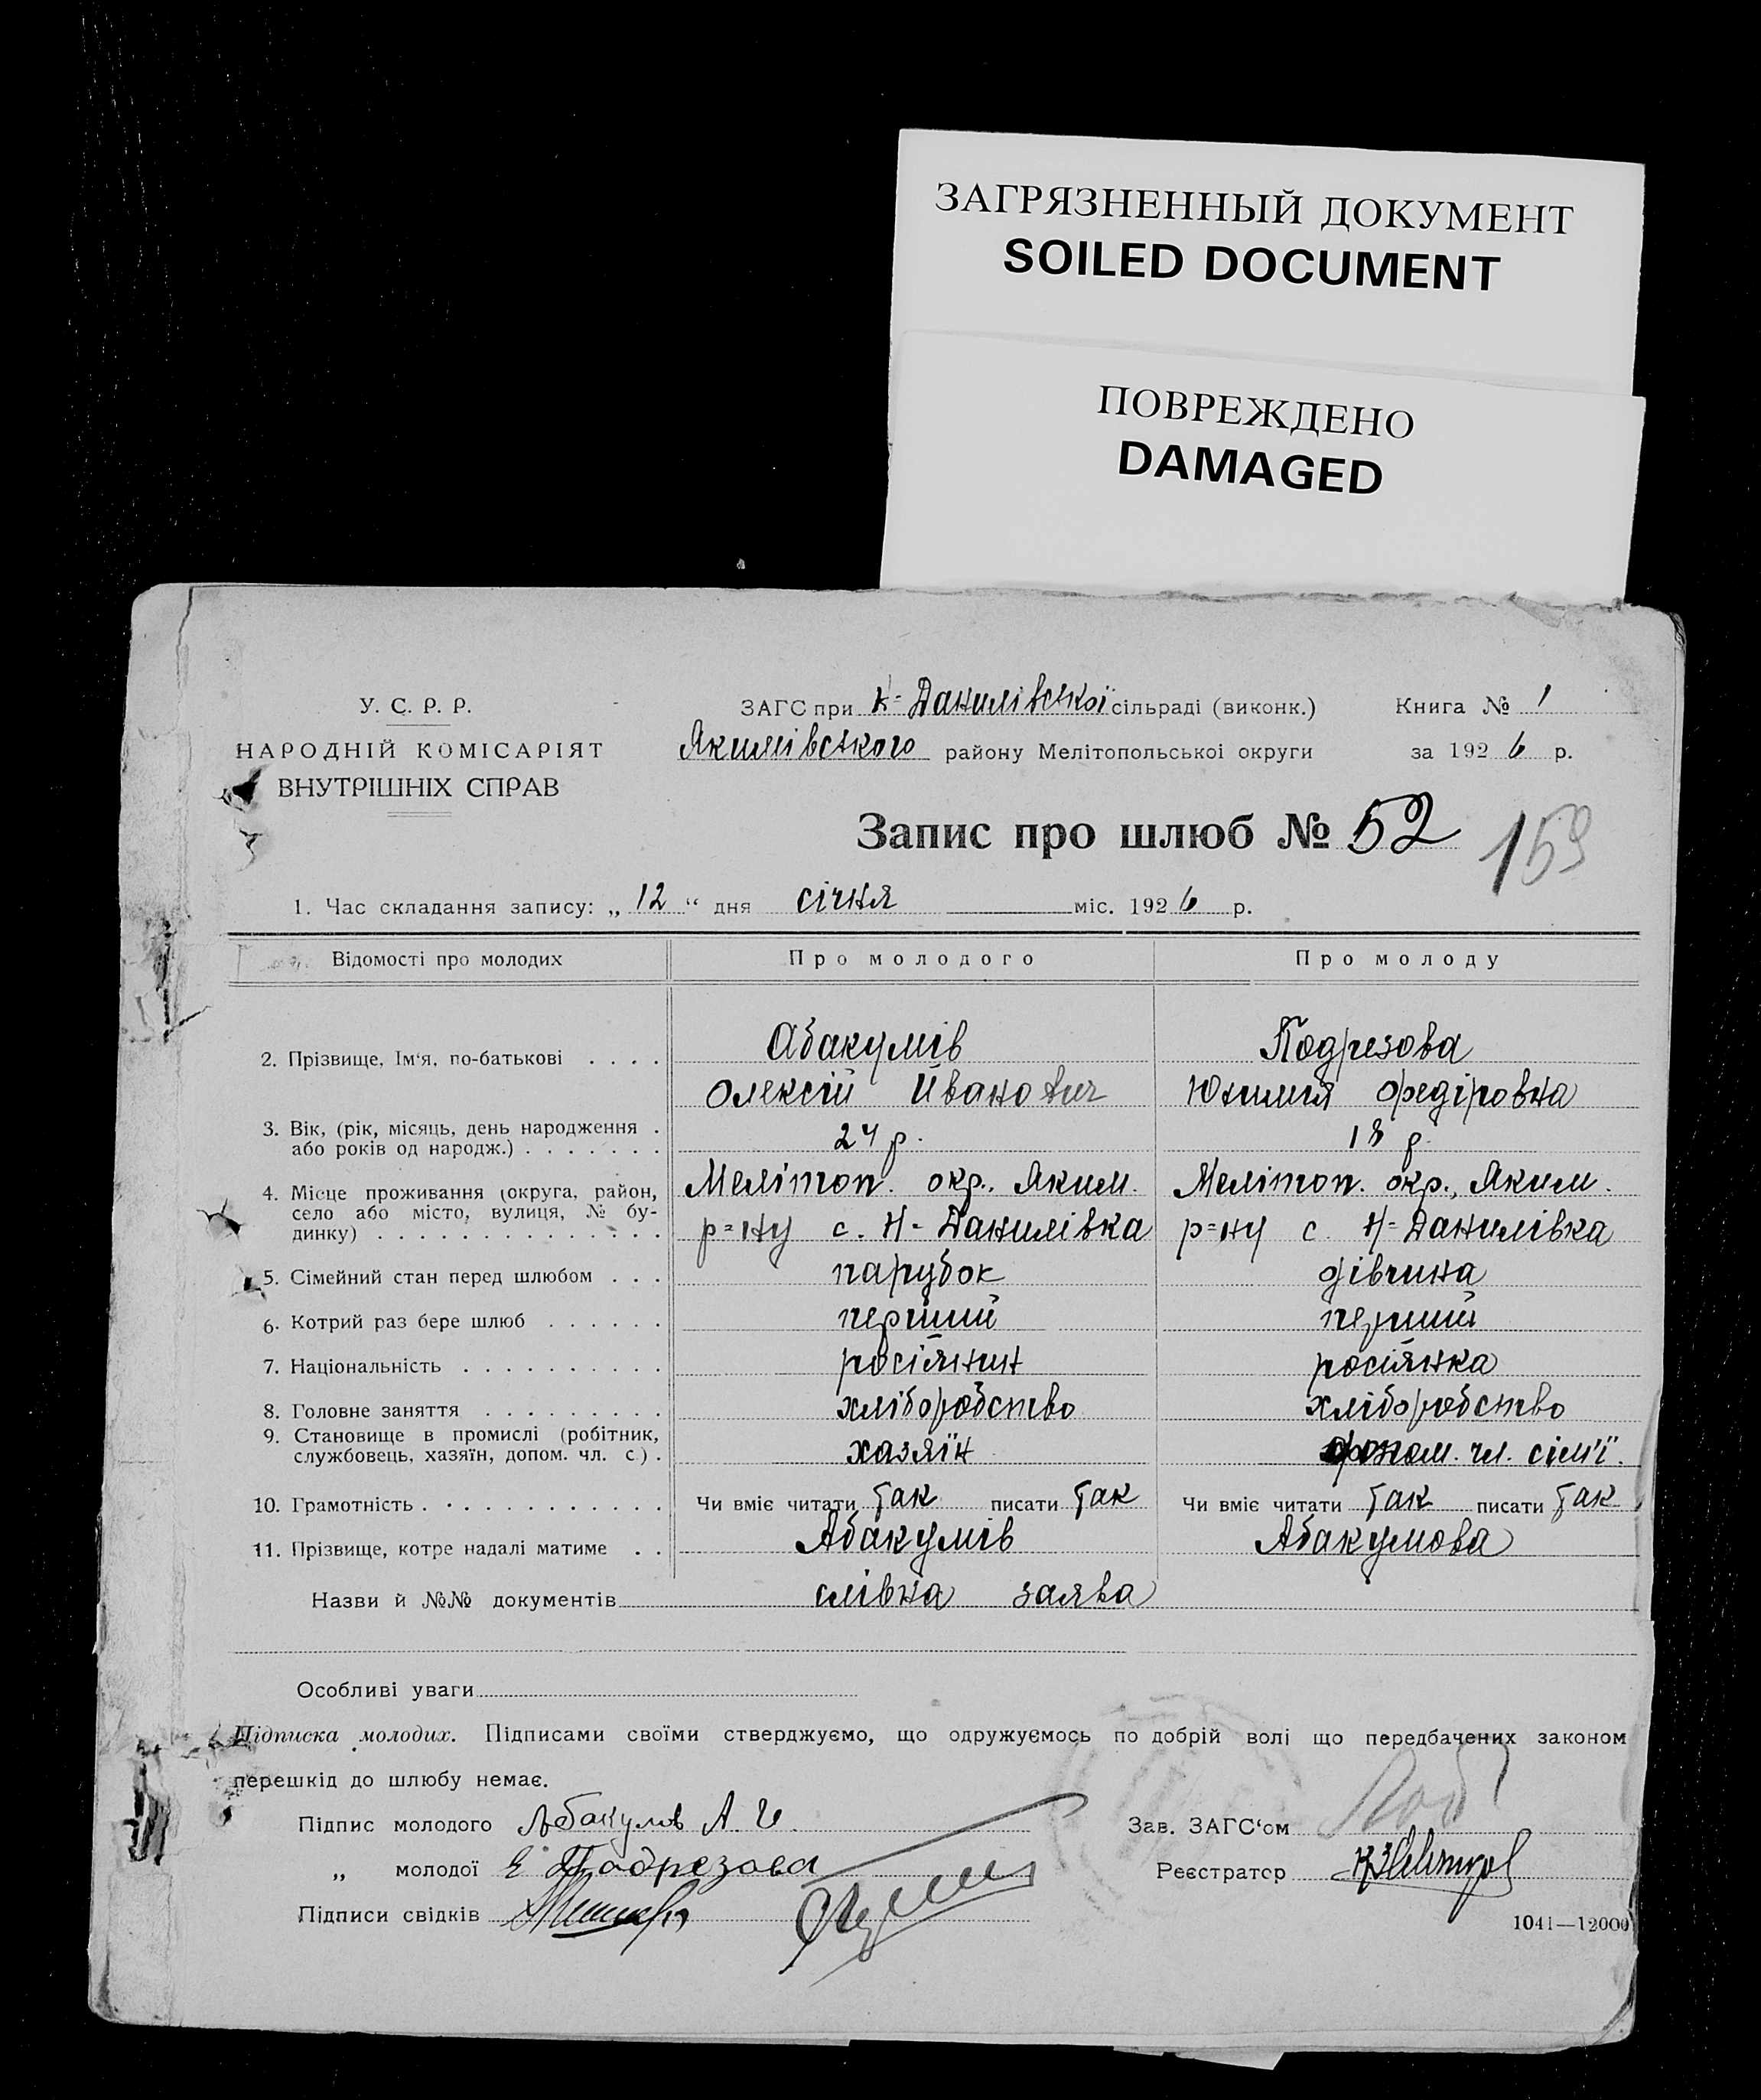 ЗАГРЯЗНЕННЫЙ ДОКУМЕНТ
SOILED DOCUMENT
ПОВРЕЖДЕНО
DAMAGED
У. С. Р. Р.
НАРОДНІЙ КОМІСАРІЯТ
ВНУТРІШНІХ СПРАВ
ЗАГС при Н-Данилівської сільраді (виконк.)
Якимівського району Мелітопольскоі округи
Книга № 1
за 1926 р.
Запис про шлюб № 52
159
1. Час складання запису: „12“ дня січня міс. 1926 р.
Відомості про молодих Про молодого Про молоду
2. Прізвище, Ім'я, по-батькові . . . . Абакумів Подрезова
Олексій Иванович Юхимія Федіровна
3. Вік, (рік, місяць, день народження . або років од народж.) . . . . . . . 24 р. 18 р.
4. Місце проживання (округа, район, Меліт­оп. окр., Яким. Мелітоп. окр., Яким.
село або місто, вулиця, № бу-
динку) . . . . . . . . . . . . . . р=ну с. Н-Данилівка р=ну с. Н-Данилівка
5. Сімейний стан перед шлюбом . . . парубок дівчина
6. Котрий раз бере шлюб . . . . . . перший перший
7. Національність . . . . . . . . . . росіянин росіянка
8. Головне заняття . . . . . . . . . хліборобство хліборобство
9. Становище в промислі (робітник,
службовець, хазяїн, допом. чл. с.) . хазяїн допом. чл. сім'ї.
10. Грамотність . . . . . . . . . . . . Чи вміє читати так писати так Чи вміє читати так писати так
11. Прізвище, котре надалі матиме . . Абакумів Абакумова
Назви й №№ документів заява
Особливі уваги
Підписка молодих. Підписами своїми стверджуємо, що одружуємось по добрій волі що передбачених законом
перешкід до шлюбу немає.
Підпис молодого Абакумов А. И.
„ молодої Е Подрезова
Підписи свідків
Зав. ЗАГС‘ом
Реєстратор
1041—12000